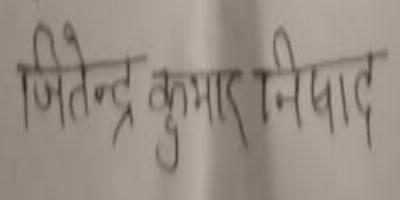 जितेन्द्र कुमार निषाद